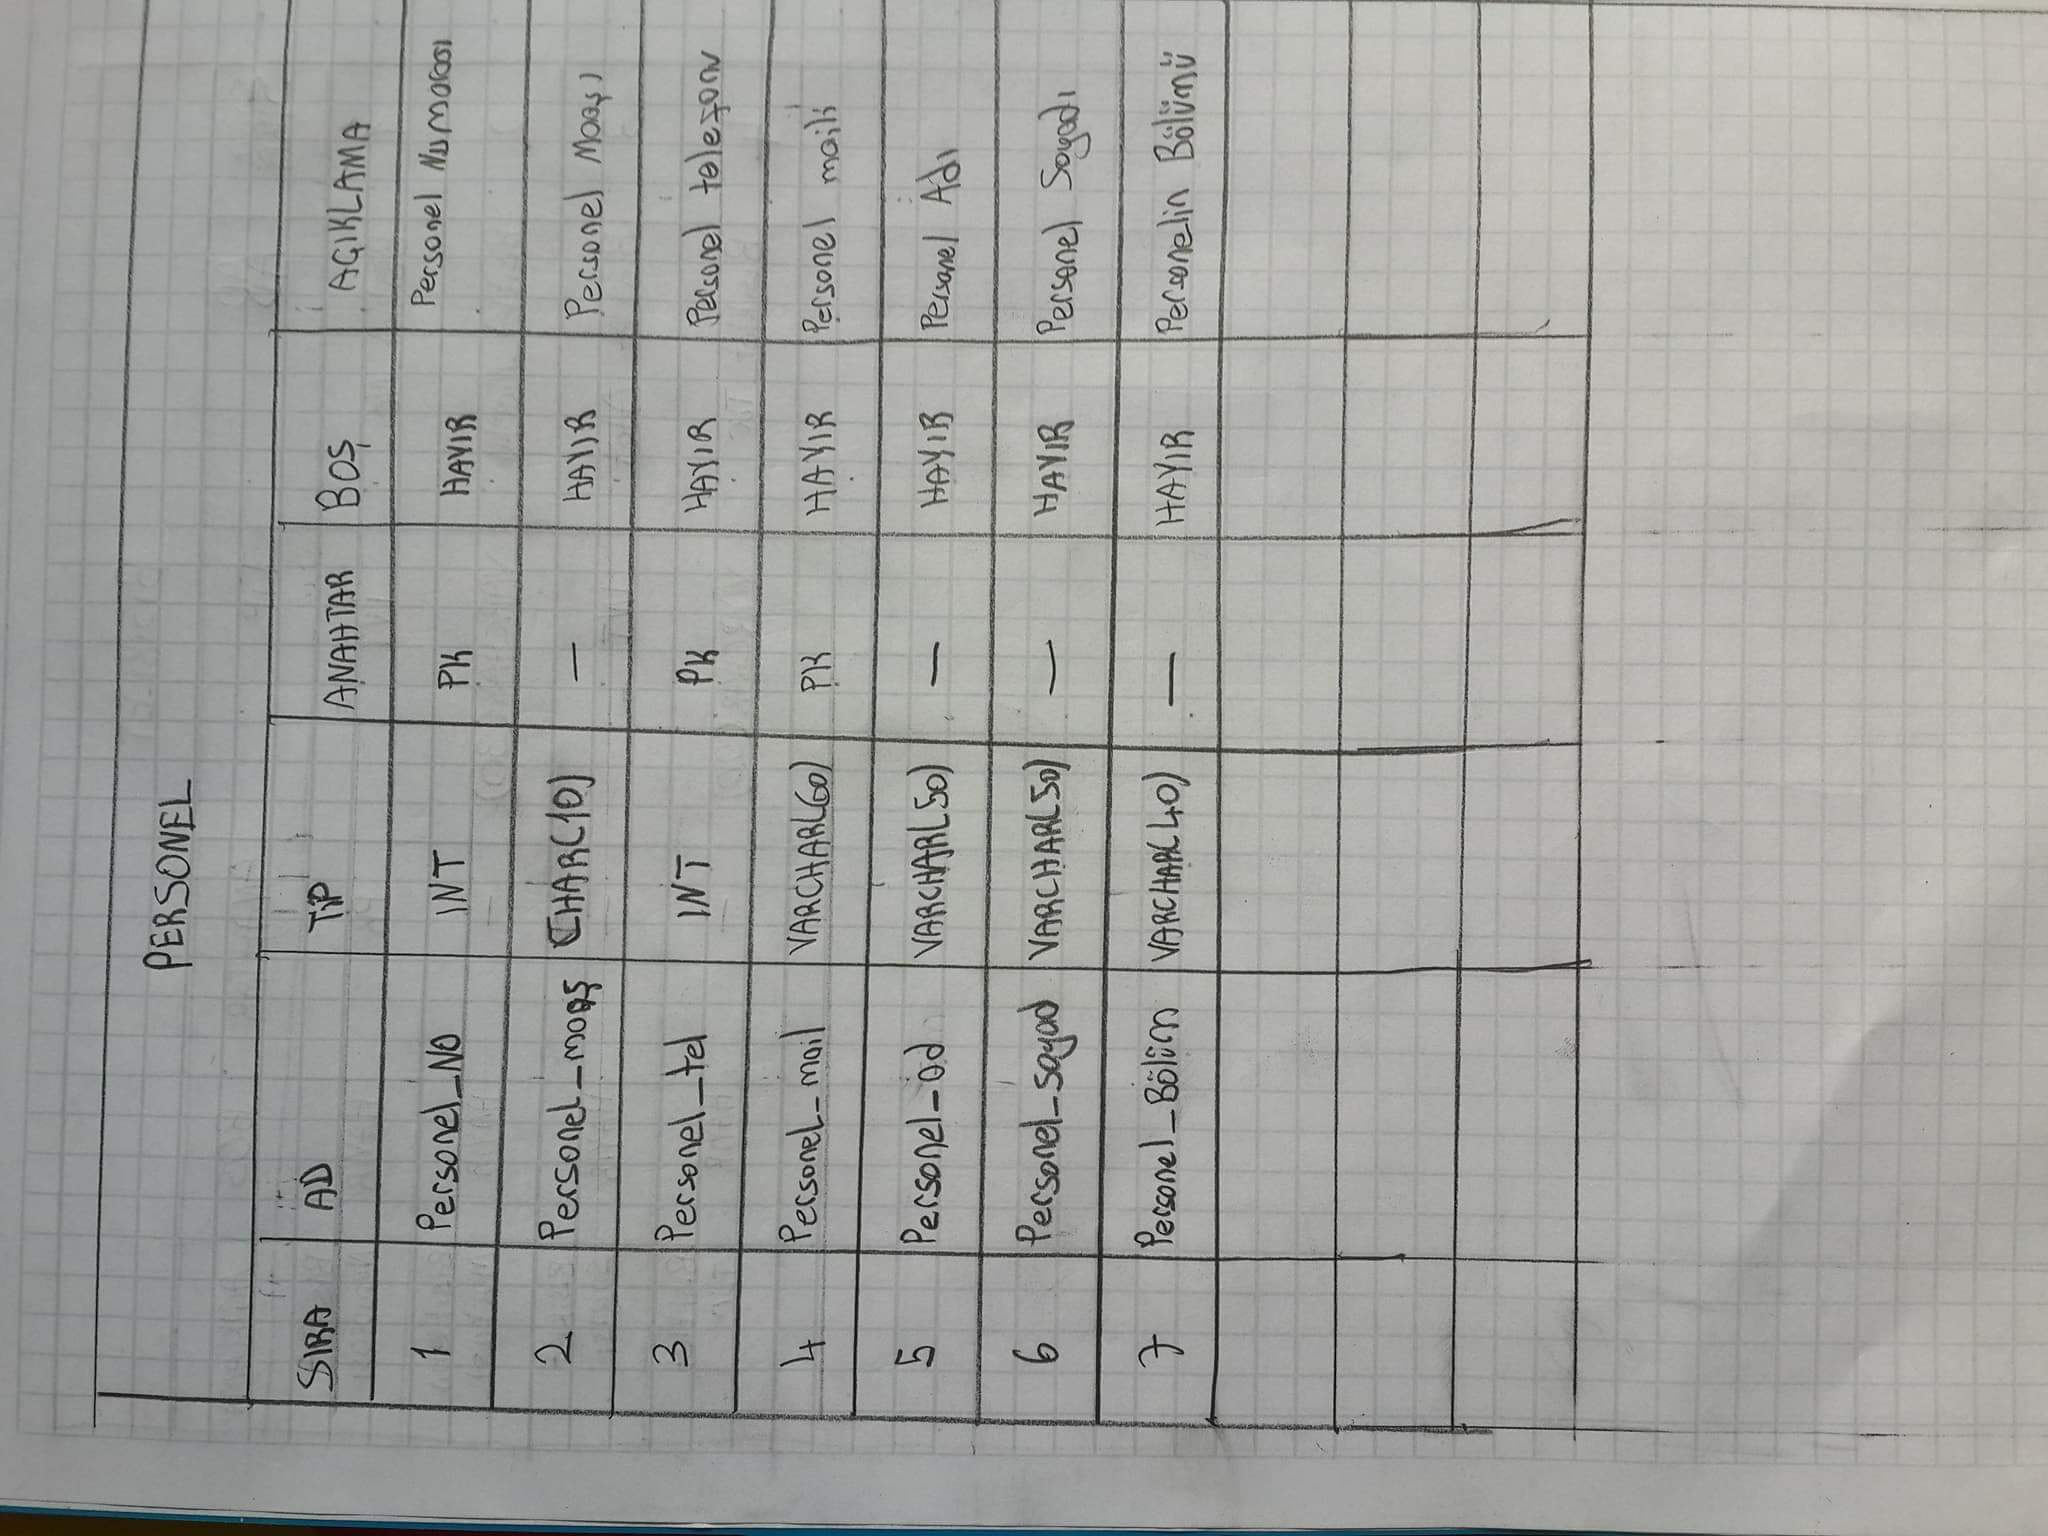 PERSONEL
SIRA AD TİP ANAHTAR BOŞ AÇIKLAMA
1 Personel_NO INT PK HAYIR Personel Numarası
2 Personel_maaş CHAR(10) — HAYIR Personel Maaşı
3 Personel_tel INT PK HAYIR Personel telefonu
4 Personel_mail VARCHAR(60) PK HAYIR Personel maili
5 Personel_ad VARCHAR(50) — HAYIR Personel Adı
6 Personel_soyad VARCHAR(50) — HAYIR Personel Soyadı
7 Personel_Bölüm VARCHAR(40) — HAYIR Personelin Bölümü